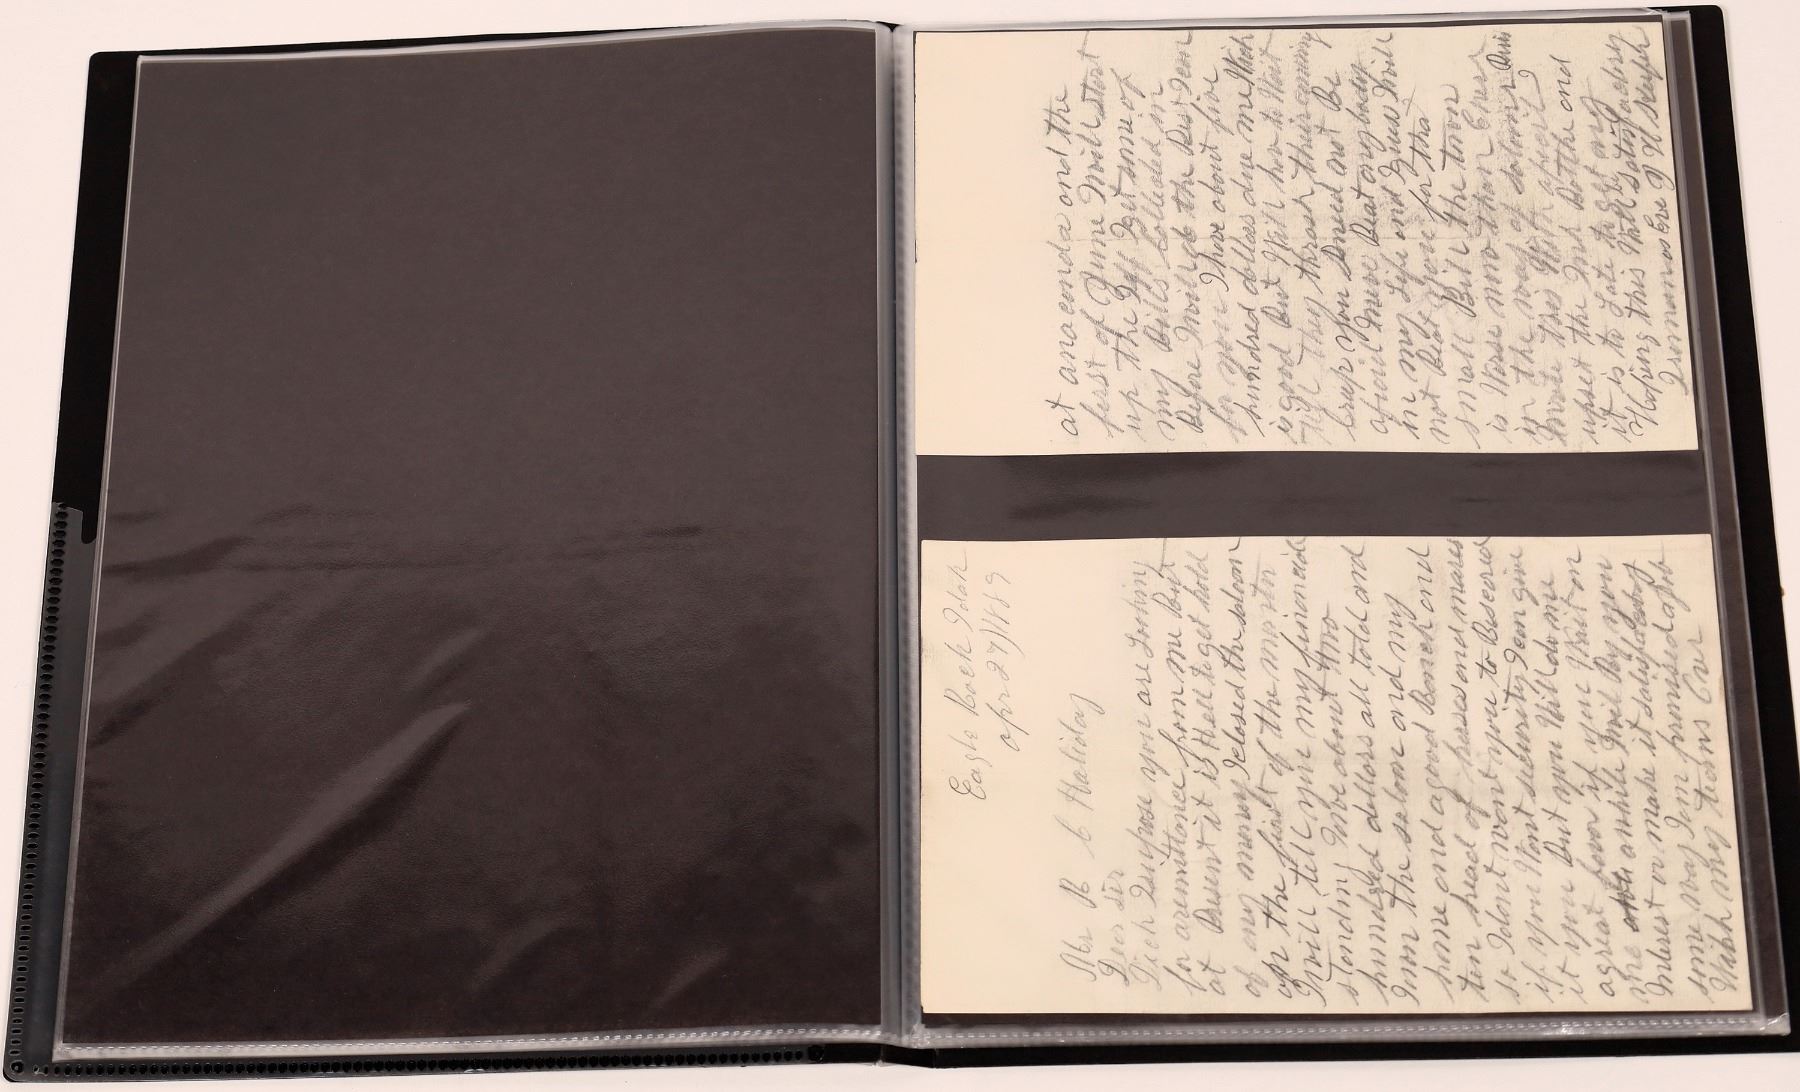 Eagle Rock Idah
Apr 27 1889
Mr R C Haliday
Dear Sir
Dick I supose you are looking
for a remittence from me but
at Present it is Hell to get hold
of any money I closed the saloon
up the first of the month
I will tell you my financial
standing I owe about two
hundred dollars all told and
I own the saloon and my
home and a good Ranch and
ten head of horses and mares
so I dont want you to Be scared
if you Want security I can give
it you But you Will do me
a great favor if you Wait on
me a while I will Pay you
Interest or make it satisfactory
some way I am promised a job
With my teams Over
at anaconda and the
first of June I will start
up the I get some of
my Bills Collected in
Before I will do the Best I can
for you I have about five
hundred dollars due me Wich
is good But I Will have to Wait
till they their money
you need not Be
afraid I never Beat any body
in my Life and I Will
not Beat you for this
small Bill the town
is Worse now than Ever
in the way of saloons
made this
upset the and
it is to late to get any
Hoping this Will satisfactory
I remain as Ever